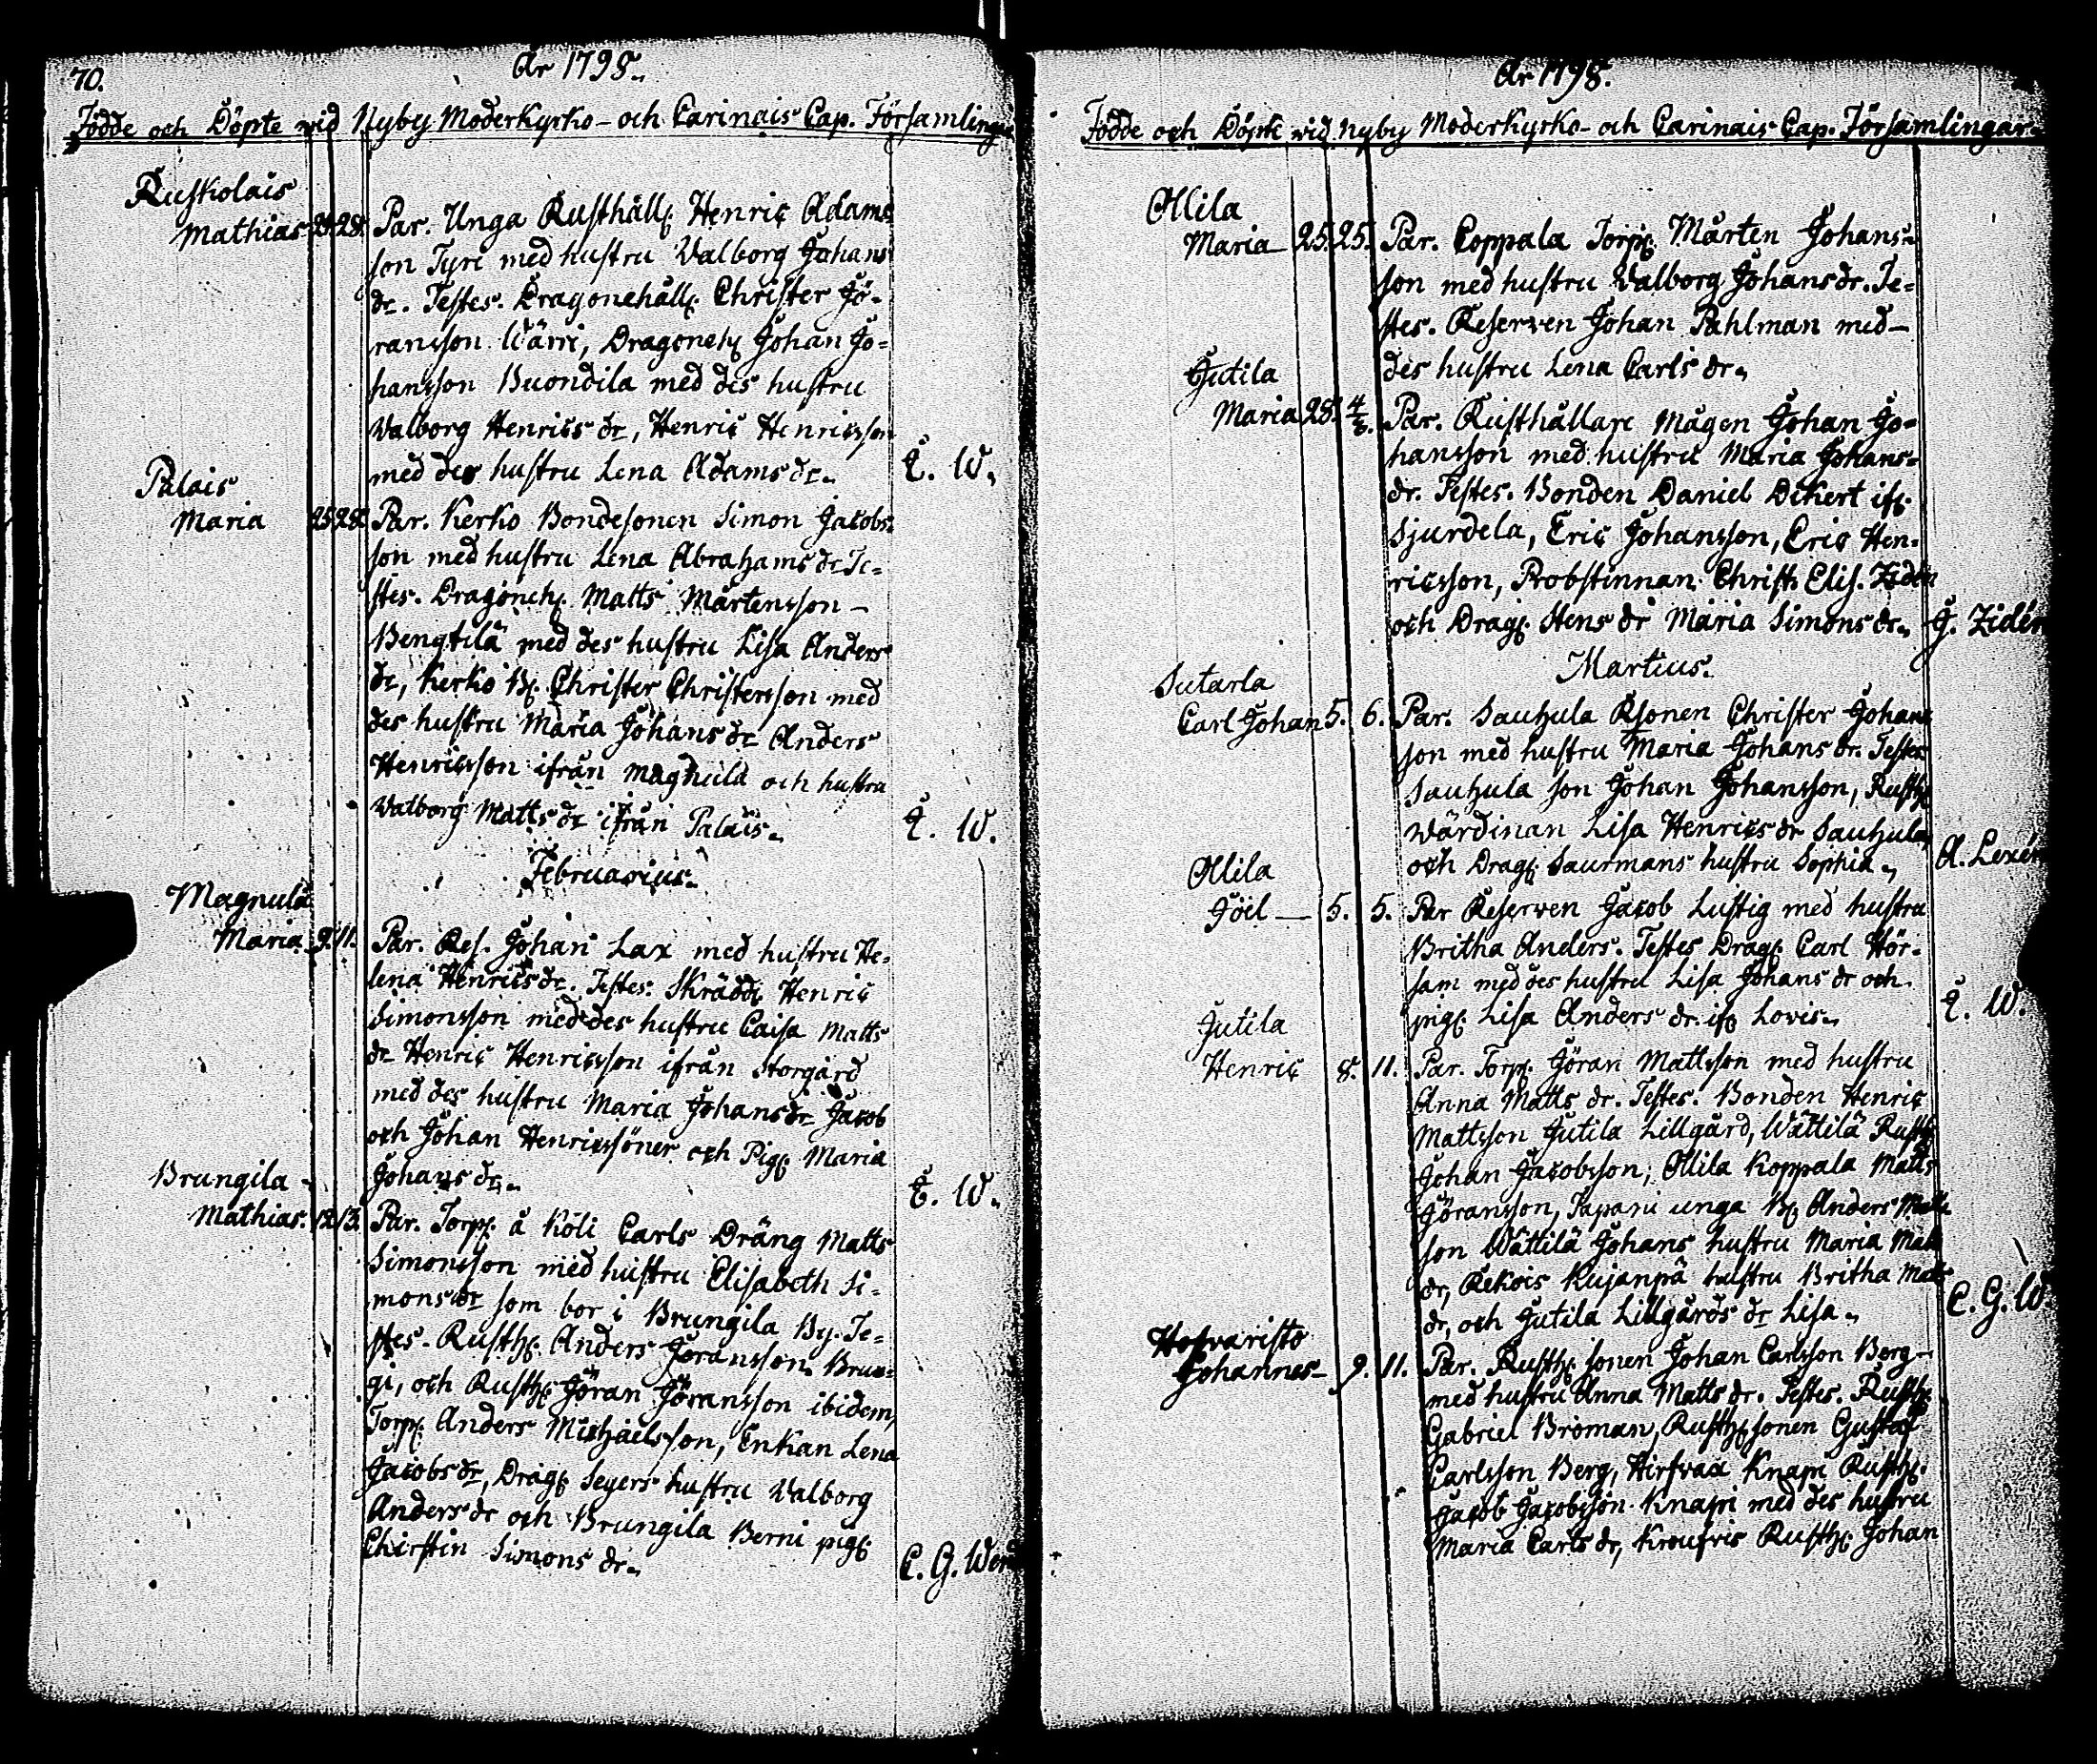 70.
År 1798.
Födde och Döpte wid Nyby Moderkyrko- och Carinais Cap. Församlingar
Ruskolais
Mathias 28. Par. Unga Rusthåll. Henric Adams
son Tyri med hustru Walborg Johans
dr. Testes. Dragonehåll. Christer Jö-
ransson Wärri, Dragoneh. Johan Jo-
hansson Buondila med des hustru
Walborg Henrics dr, Henric Henricsson
med des hustru Lena Adams dr.
E. W.
Palais
Maria 25. 28. Par. Kerko Bondesonen Simon Jacobs
son med hustru Lena Abrahams dr Te-
stes. Dragoneh. Matts Mårtensson -
Bengtilä med des hustru Lisa Anders
dr, Kerko B. Christer Christersson med
des hustru Maria Johans dr Anders
Henricsson ifrån Magnula och hustru
Walborg Matts dr ifrån Palais.
E. W.
Februarius.
Magnula
Maria 9. 11. Par. Res. Johan Lax med hustru He-
lena Henrics dr. Testes. Skrädd. Henric
Simonsson med des hustru Caisa Matts
dr Henric Henricsson ifrån Storgård
med des hustru Maria Johans dr Jacob
och Johan Henricssöner och Pig. Maria
Johans dr.
E. W.
Brungila
Mathias. 12. 13. Par. Torp. å Köli Carls Dräng Matts
Simonsson med hustru Elisabeth Si-
mons dr som bor i Brungila By. Te-
stes. Rusth. Anders Göransson Brun-
gi, och Rusth. Göran Göransson ibidem,
Torp. Anders Michaelsson, Enkan Lena
Jacobs dr, Drag. Segers hustru Walborg
Anders dr och Brungila Berni pig.
Chirstin Simons dr.
C. G. Wer
År 1798.
Födde och Döpte wid Nyby Moderkyrko- och Carinais Cap. Församlingar.
Ollila
Maria - 25. 25. Par. Coppala Torp. Mårten Johans-
son med hustru Walborg Johans dr. Te-
stes. Reserven Johan Pahlman med -
des hustru Lena Carls dr.
Jutila
Maria 28. 4/3. Par. Rusthållare Mågen Johan Jo-
hansson med hustru Maria Johans-
dr. Testes. Bonden Daniel Dikert if.
Sjurdela, Eric Johansson, Eric Hen-
ricsson, Probstinnan Christ. Elis. Zidén
och Drag. Stens dr Maria Simons dr.
J. Zidén
Martius.
Sutarla
Carl Johan 5. 6. Par. Sauhula Rsonen Christer Johans
son med hustru Maria Johans dr. Testes
Sauhula son Johan Johansson, Rusth.
wärdinan Lisa Henrics dr Sauhula,
och Drag. Saurmans hustru Sophia.
A. Lexén
Ollila
Jöel - 5. 5. Par Reserven Jacob Lustig med hustru
Britha Anders. Testes Drag. Carl Hör-
sam med des hustru Lisa Johans dr och
pig. Lisa Anders dr. if. Lovis.
E. W.
Jutila
Henric 8. 11. Par. Torp. Jöran Mattsson med hustru
Anna Matts dr. Testes. Bonden Henric
Mattsson Jutila Lillgård, Wättilä Rusth.
Johan Jacobsson, Ollila Koppala Matts
Jöransson, Tapani unga B. Anders Matts
son Wättilä Johans hustru Maria Matts
dr, Rekois Kujanpä hustru Britha Matts
dr, och Jutila Lillgårds dr Lisa.
C. G. W.
Hofvaristo
Johannes - 9. 11. Par. Rusth. sonen Johan Carlsson Berg -
med hustru Anna Matts dr. Testes. Rusth.
Gabriel Broman, Rusth. sonen Gustaf
Carlsson Berg, Hirfvax Knapi Rusth.
Jacob Jacobsson Knapi med des hustru
Maria Carls dr, Kroufvis Rusth. Johan